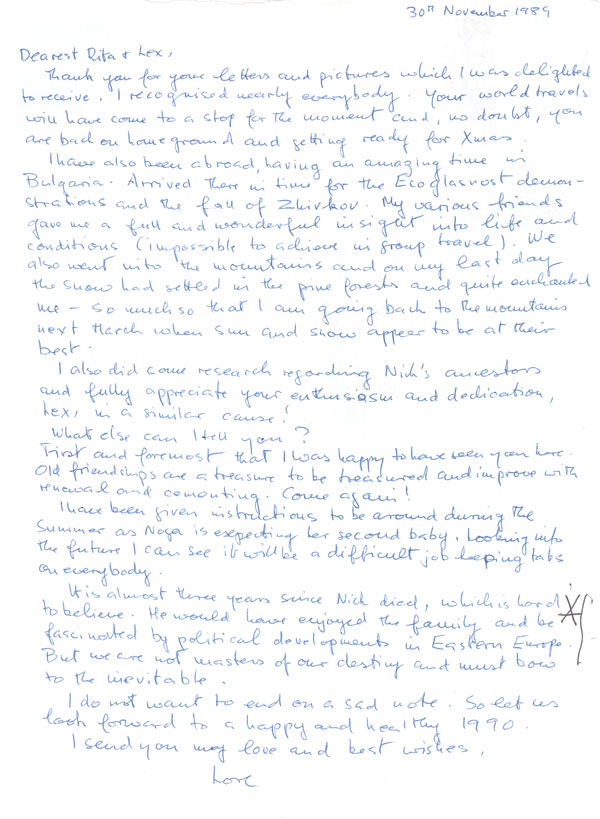 30TH November 1989
Dearest Rita & Lex,
Thank you for your letters and pictures which I was delighted
to receive. I recognised nearly everybody. Your world travels
will have come to a stop for the moment and, no doubt, you
are back on home ground and getting ready for Xmas.
I have also been abroad, having an amazing time in
Bulgaria. Arrived there in time for the Ecoglasnost demon-
strations and the fall of Zhivkov. My various friends
gave me a full and wonderful insight into life and
conditions (impossible to achieve in group travel). We
also went into the mountains and on my last day
the snow had settled in the pine forests and quite enchanted
me - so much so that I am going back to the mountains
next March when sun and snow appear to be at their
best.
I also did some research regarding Nick's ancestors
and fully appreciate your enthusiasm and dedication,
Lex, in a similar cause!
What else can I tell you?
First and foremost that I was happy to have seen you here.
Old friendships are a treasure to be treasured and improve with
renewal and cementing. Come again!
I have been given instructions to be around during the
Summer as Noga is expecting her second baby. Looking into
the future I can see it will be a difficult job keeping tabs
on everybody.
It is almost three years since Nick died, which is hard
to believe. He would have enjoyed the family and be
fascinated by political developments in Eastern Europe.
But we are not masters of our destiny and must bow
to the inevitable.
I do not want to end on a sad note. So let us
look forward to a happy and healthy 1990.
I send you my love and best wishes,
Lore